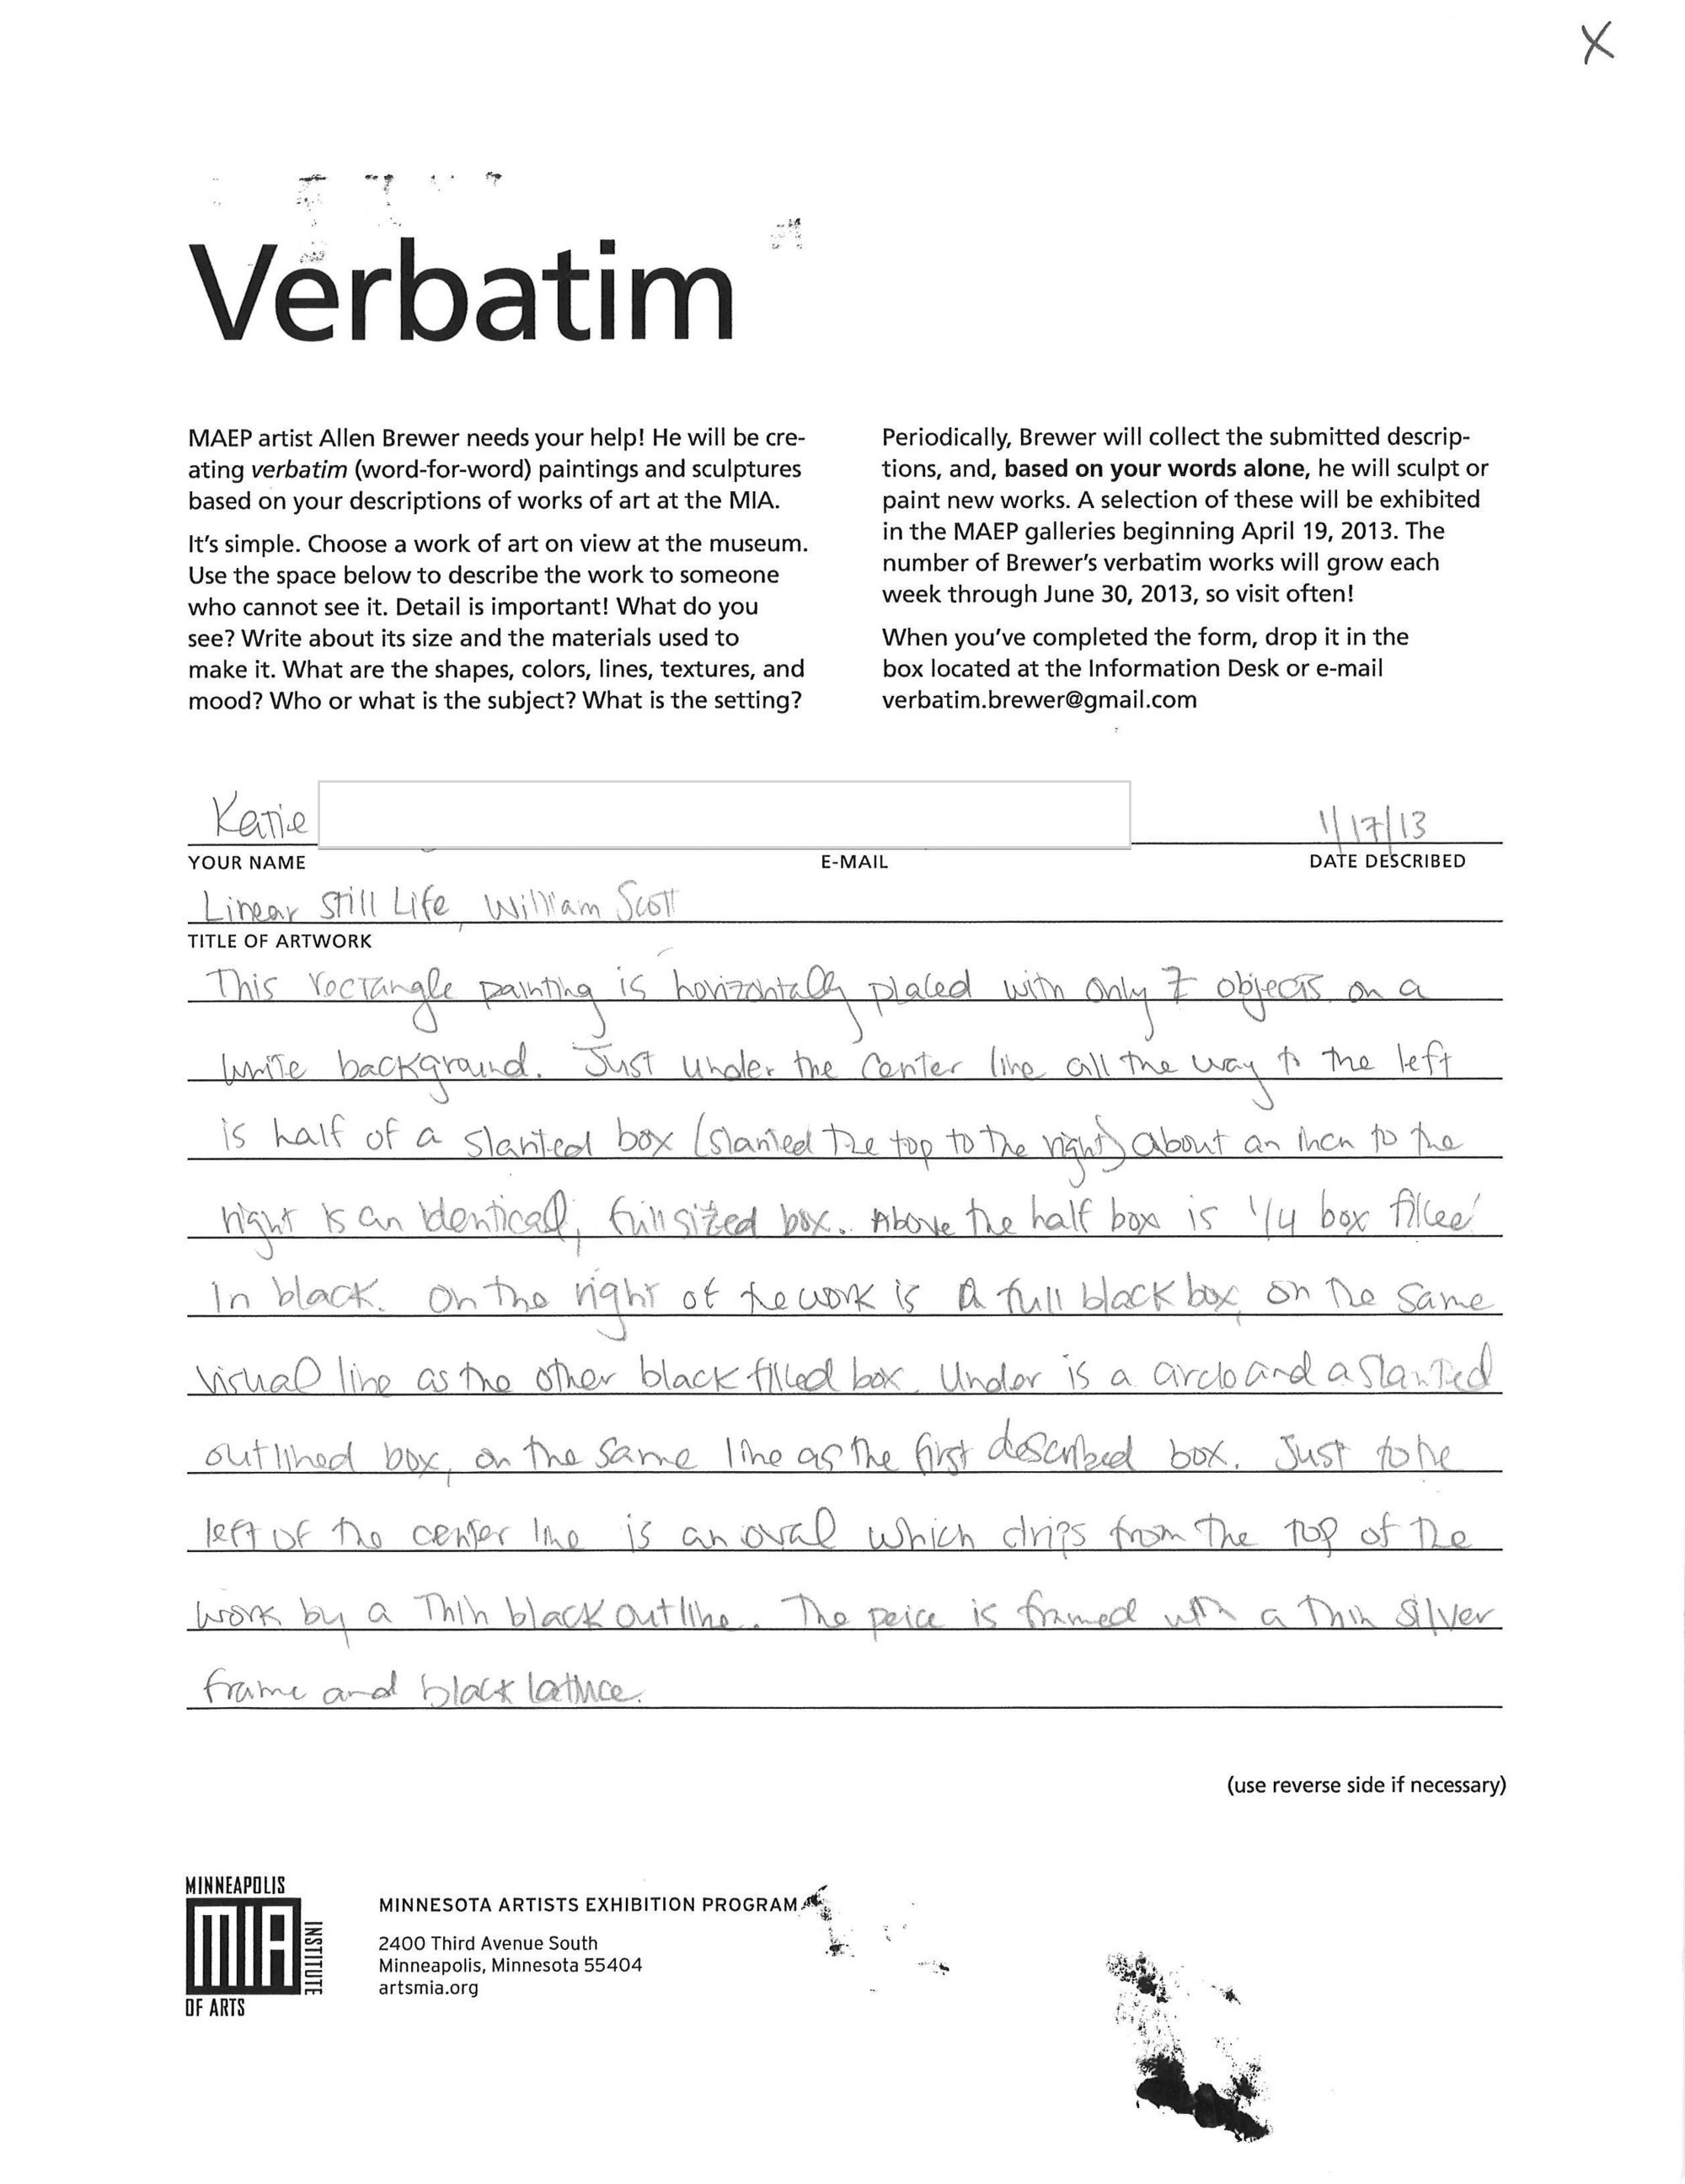 X
Verbatim
MAEP artist Allen Brewer needs your help! He will be cre-
ating verbatim (word-for-word) paintings and sculptures
based on your descriptions of works of art at the MIA.
It's simple. Choose a work of art on view at the museum.
Use the space below to describe the work to someone
who cannot see it. Detail is important! What do you
see? Write about its size and the materials used to
make it. What are the shapes, colors, lines, textures, and
mood? Who or what is the subject? What is the setting?
Periodically, Brewer will collect the submitted descrip-
tions, and, based on your words alone, he will sculpt or
paint new works. A selection of these will be exhibited
in the MAEP galleries beginning April 19, 2013. The
number of Brewer's verbatim works will grow each
week through June 30, 2013, so visit often!
When you've completed the form, drop it in the
box located at the Information Desk or e-mail
verbatim.brewer@gmail.com
Katie 1/17/13
YOUR NAME E-MAIL DATE DESCRIBED
Linear Still Life, William Scott
TITLE OF ARTWORK
This rectangle painting is horizontally placed with only 7 objects on a
white background. Just under the center line all the way to the left
is half of a slanted box (slanted the top to the right) about an inch to the
right is an identical, full sized box. Above the half box is 1/4 box filled
in black. On the right of the work is a full black box, on the same
visual line as the other black filled box. Under is a circle and a slanted
outlined box, on the same line as the first described box. Just to the
left of the center line is an oval which drips from the top of the
work by a thin black outline. The peice is framed with a thin silver
frame and black lattice.
(use reverse side if necessary)
MINNEAPOLIS
MIA
INSTITUTE
OF ARTS
MINNESOTA ARTISTS EXHIBITION PROGRAM
2400 Third Avenue South
Minneapolis, Minnesota 55404
artsmia.org